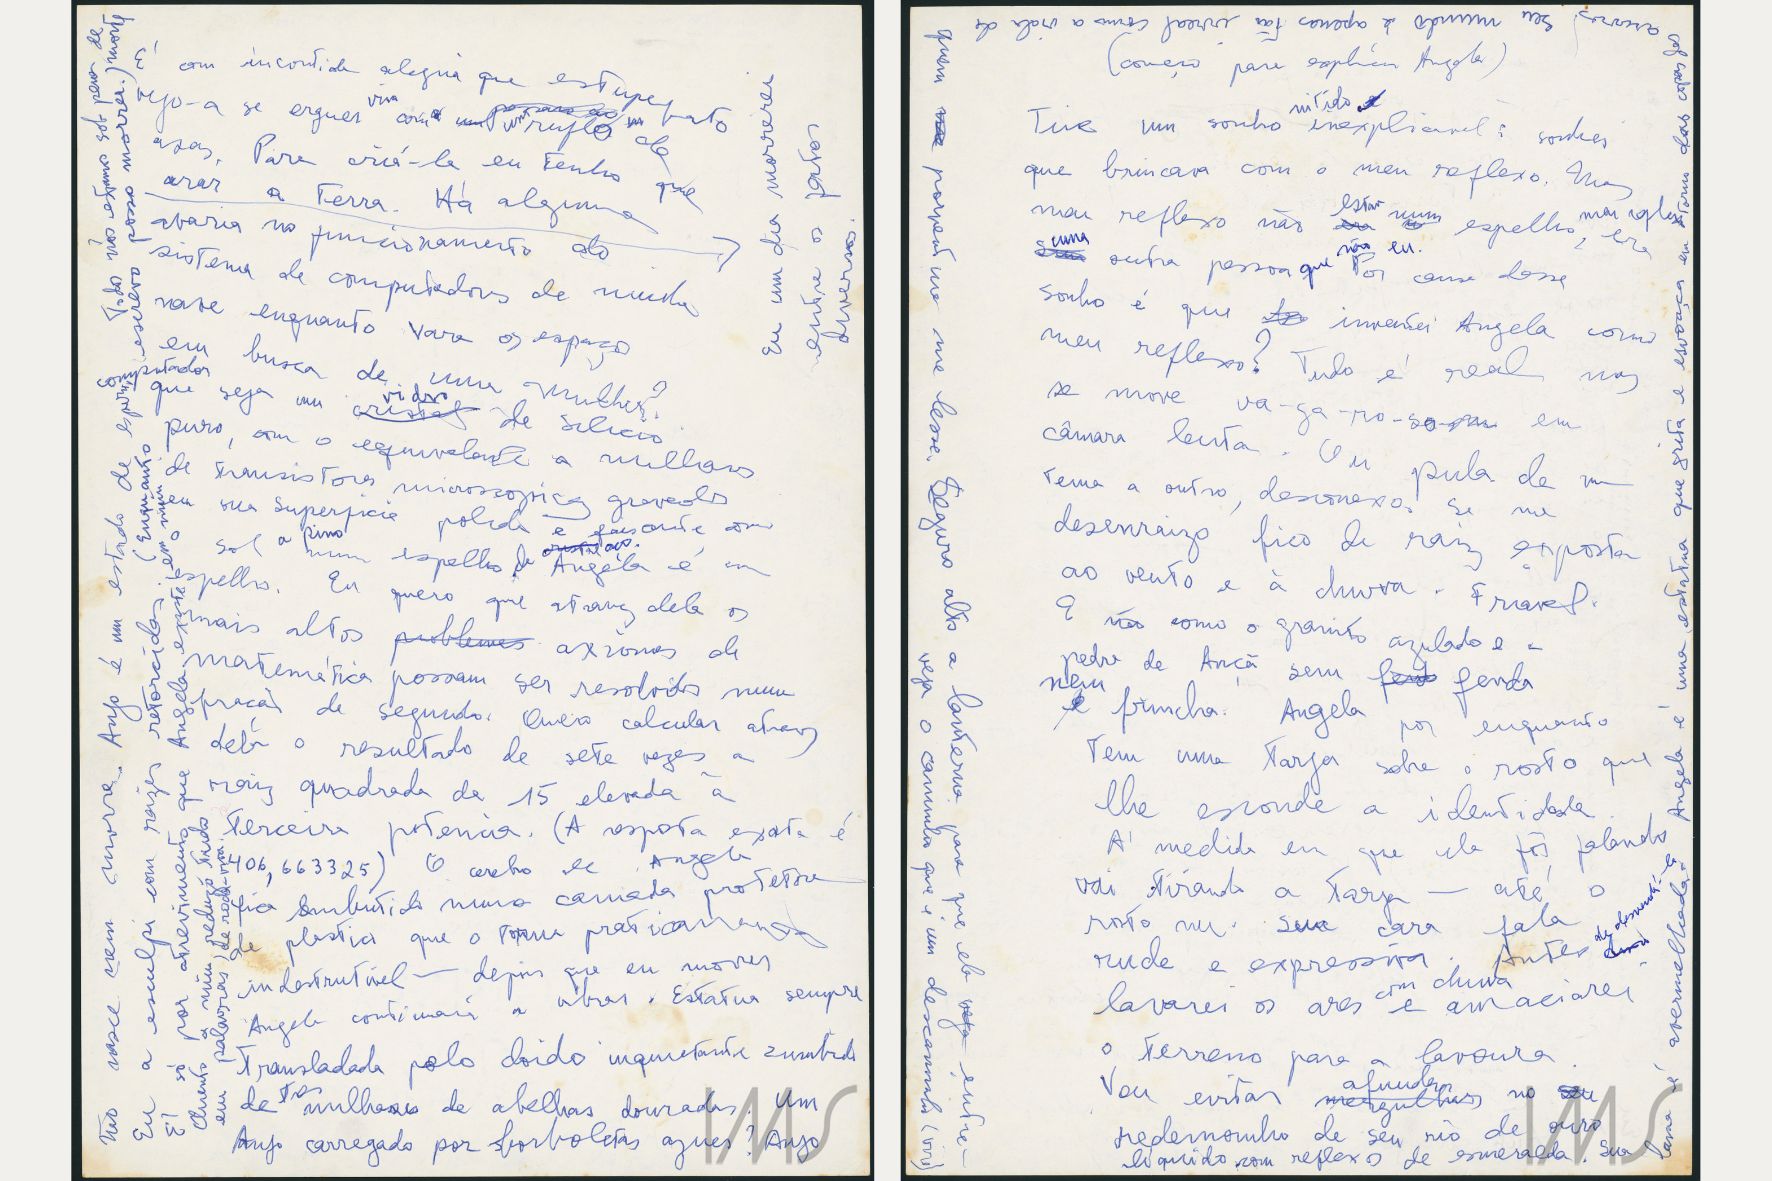 com incontida alegria que estupefato
vejo-a se erguer viva com um ruflo de
asas. Para criá-la eu tenho que
arar a Terra. Há alguma
avaria no funcionamento do
sistema de computadores de minha
nave enquanto vara os espaços
em busca de uma mulher?
computador
que seja um vidro cristal de silício
puro, com o equivalente a milhares
de transistores microscópicos gravados
em sua superfície polida e faiscante com
sol a pino num espelho. Angela é um
espelho. Eu quero que através dela os
mais altos problemas axiomas de
matemática possam ser resolvidos numa
fração de segundo. Quero calcular através
dela o resultado de sete vezes a
raiz quadrada de 15 elevada à
terceira potencia. (A resposta exata é
406,663325) O cerebro de Angela
fica embutido numa camada protetora
de plastico que o torna praticamente
indestrutível — depois que eu morrer
Angela continuará a vibrar. Estatua sempre
Transladada pelo doido inquietante zumbido
de tres milhares de abelhas douradas. Um
Anjo carregado por borboletas azues? Anjo
Não nasce nem morre. Anjo é um estado de espírito.
Eu a esculpi com raizes retorcidas.
É só por atrevimento que Angela existe em mim.
Quanto a mim reduzo tudo
em palavras de roda-viva.
(Enquanto
escrevo não posso morrer.)
Todos nós estamos sob pena de
morte
Eu um dia morrerei
entre os fartos
diversos.
assovios. Seu mundo é apenas tão irreal como a vida de
quem porventura me lesse. Seguro alto a lanterna para que ela veja entre-
veja o caminho que é um descaminho (vire)
(começo para explicar Angela)
Tive um sonho nitido inexplicavel: sonhei
que brincava com o meu reflexo. Mas
meu reflexo não estar num espelho, meu reflexo era
uma outra pessoa que não eu.
Por causa desse
sonho é que inventei Angela como
meu reflexo? Tudo é real mas
se move va-ga-ro-so em
câmara lenta. Ou pula de um
tema a outro, desconexo. Se me
desenraizo fico de raiz exposta
ao vento e à chuva. Friavel.
E não como o granito azulado e a
pedra de Ançã sem fenda
nem frincha. Angela por enquanto
tem uma tarja sobre o rosto que
lhe esconde a identidade.
À medida em que ela for falando
vai tirando a tarja — até o
rosto nu. Sua cara fala
rude e expressiva. Antes de desvendá-la
lavarei os ares com chuva e amaciarei
o terreno para a lavoura.
Vou evitar afundar mergulhar no seu
redemoinho de seu rio de ouro
liquido com reflexos de esmeralda. Sua
lama é avermelhada. Angela é uma estatua que grita e esvoaça em torno das copas das